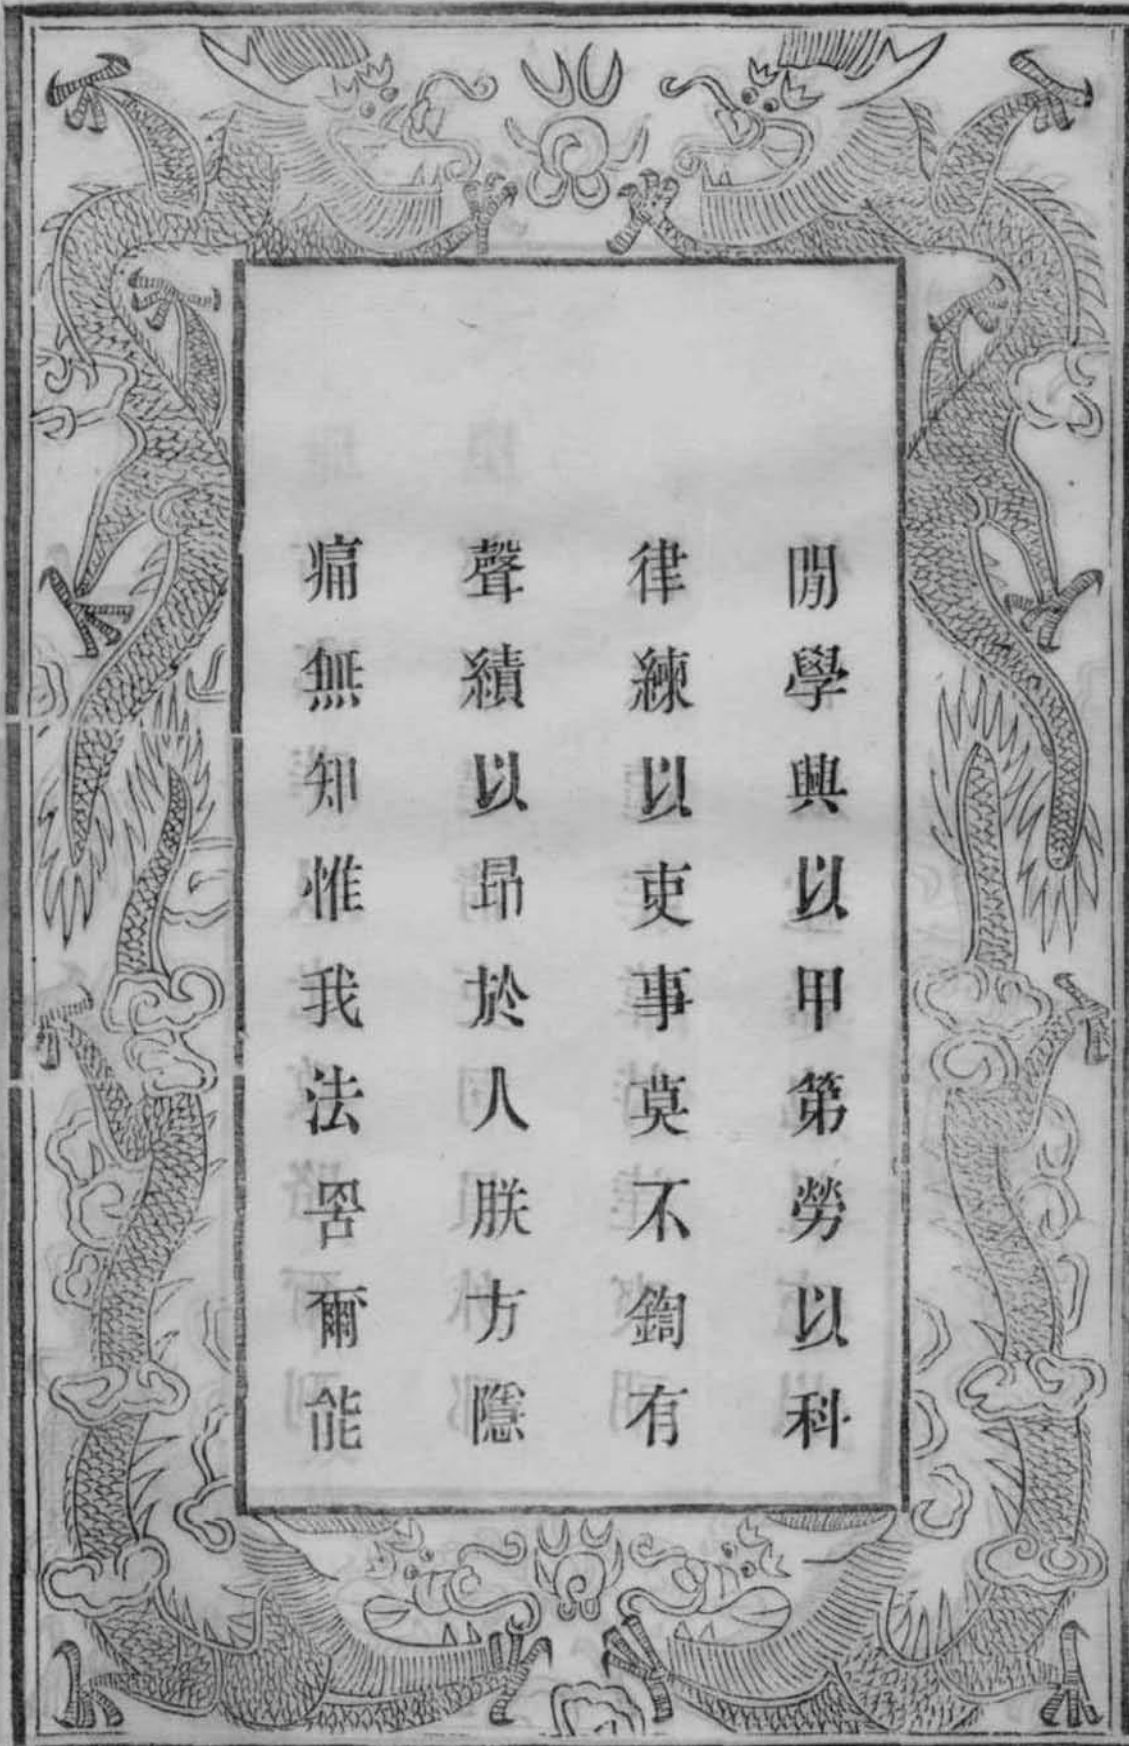 閒學興以甲第勞以科
律練以吏事莫不鍧有
聲績以昻於人朕方隱
痛無知惟我法罟爾能